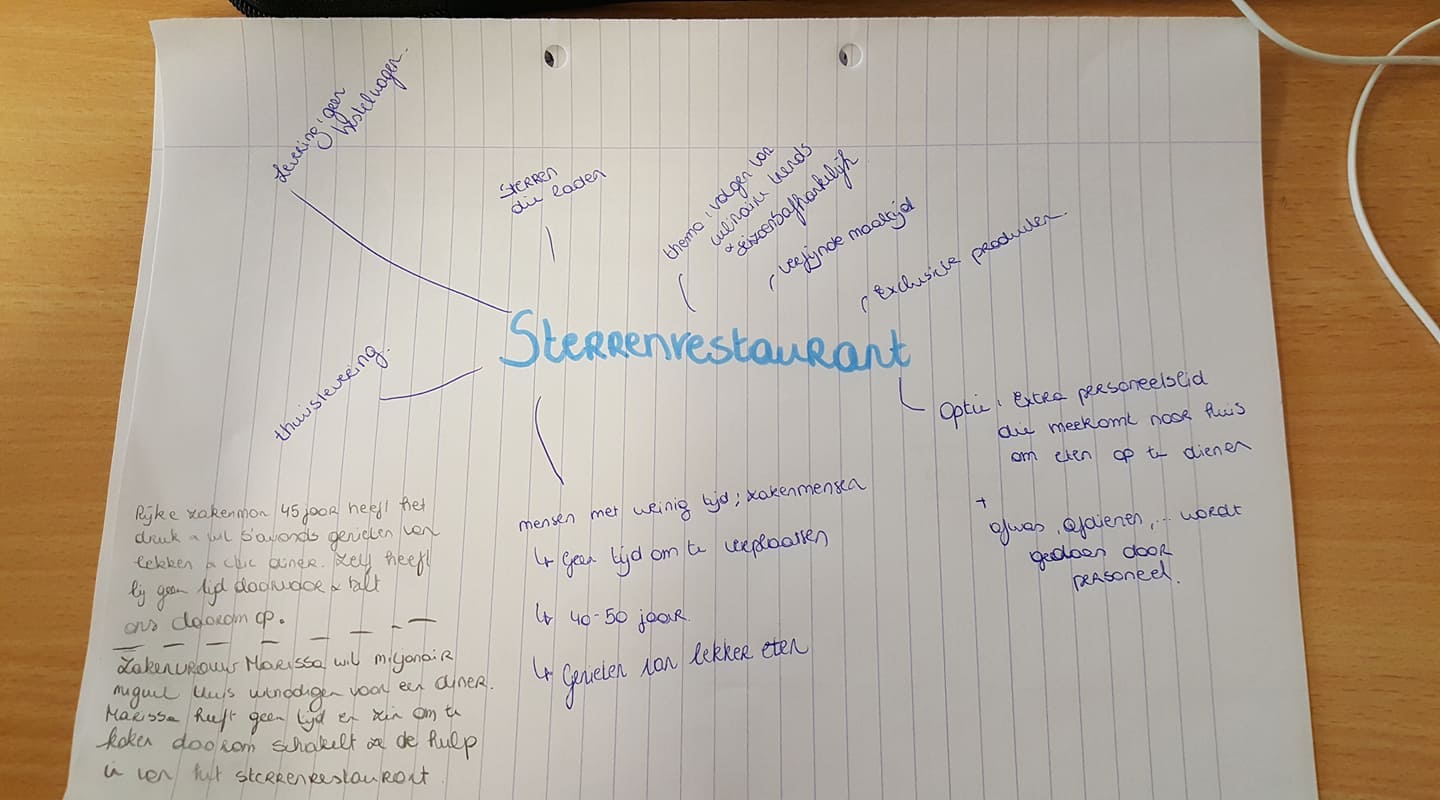 Levering: geen
bestelwagen.
Sterren
die laden
thema: volgen van
culinaire trends
& seizoensafhankelijk
verfijnde maaltijd
Exclusieve producten.
Sterrenrestaurant
thuislevering.
Optie: Extra personeelslid
die meekomt naar huis
om eten op te dienen
+
afwas, afdienen,... wordt
gedaan door
personeel.
mensen met weinig tijd; zakenmensen
↳ Geen tijd om te verplaatsen
↳ 40-50 jaar
↳ Genieten van lekker eten
Rijke zakenman 45 jaar heeft het
druk & wil s'avonds genieten van
lekker & chic diner. Zelf heeft
hij geen tijd daarvoor & belt
ons daarom op.
Zakenvrouw Marissa wil miljonair
miguel thuis uitnodigen voor een diner.
Marissa heeft geen tijd en zin om te
koken daarom schakelt ze de hulp
in van het sterrenrestaurant